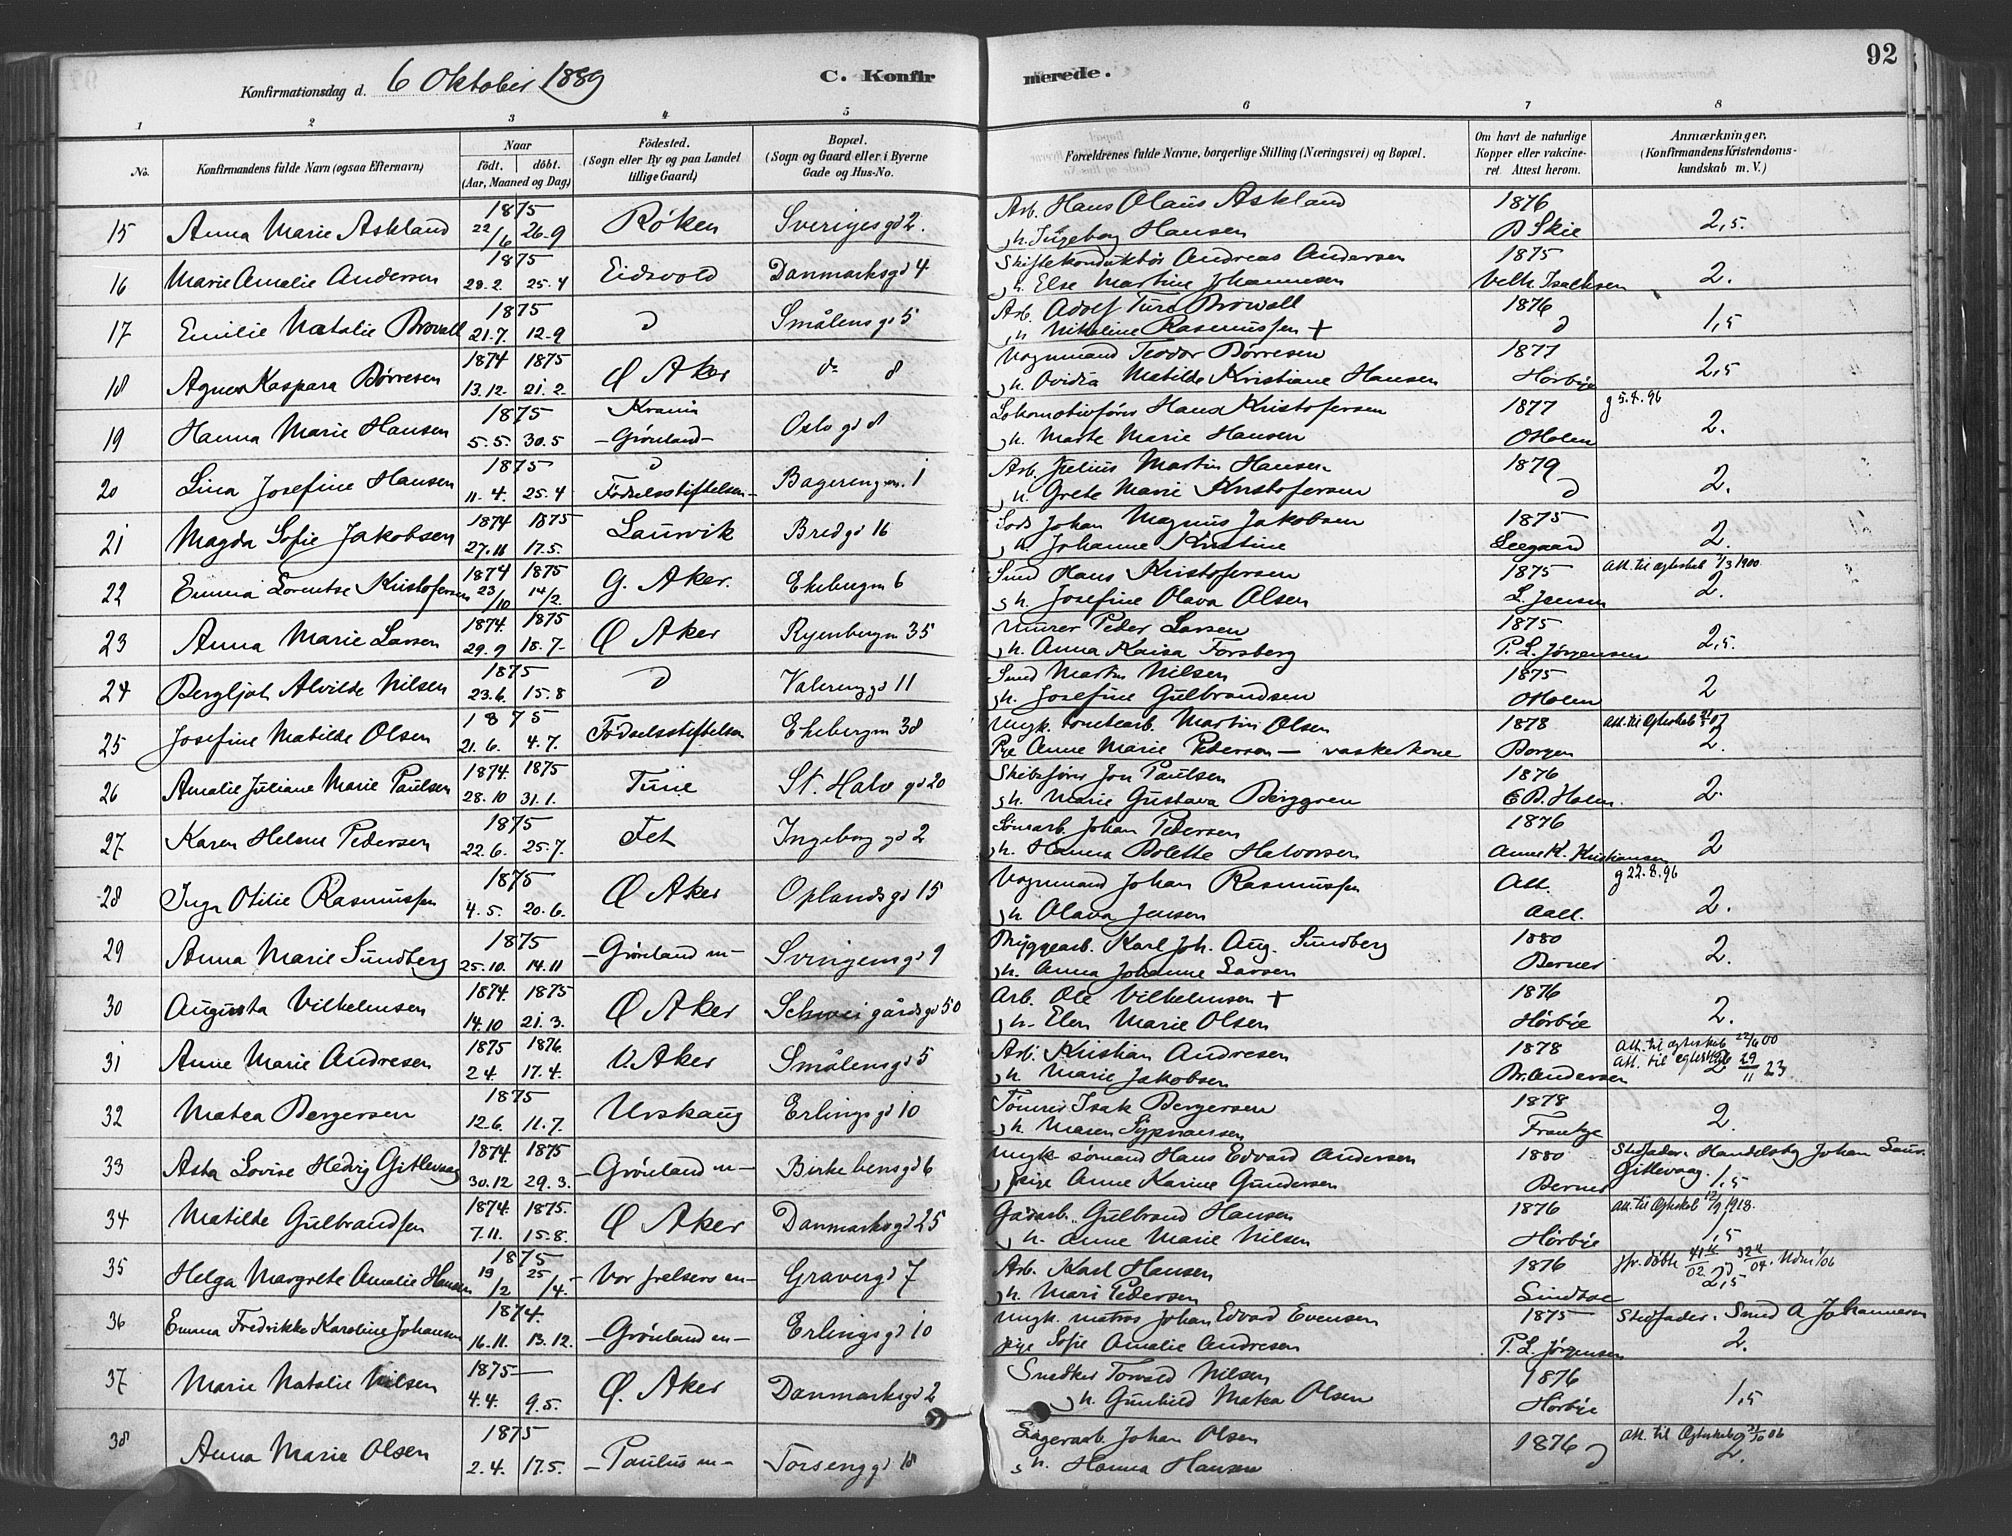 92
Konfirmationsdag d. 6 Oktober 1889
C. Konfirmerede.
1 2 3 4 5 6 7 8
No.
Konfirmandens fulde Navn (ogsaa Efternavn)
Naar
födt. döbt.
(Aar, Maaned og Dag)
Födested.
(Sogn eller By og paa Landet tillige Gaard)
Bopæl.
(Sogn og Gaard eller i Byerne Gade og Hus-No.
Forældrenes fulde Navne, borgerlige Stilling (Næringsvei) og Bopæl.
Om havt de naturlige Kopper eller vakcineret Attest herom.
Anmærkninger.
(Konfirmandens Kristendomskundskab m. V.)
15 Anna Marie Askland 1875 22/6 26-9 Röken Sverigesgd 2. Arb. Hans Olaus Askland
h. Ingeborg Hansen 1876 B Skie 2,5.
16 Marie Amalie Andersen 1875 28.2. 25.4 Eidsvold Danmarksgd 4 Skiftekonduktör Andreas Andersen
h. Else Martine Johannesen 1875 Velh. Isaksen 2.
17 Emilie Natalie Browall 1875 21.7. 12-9 d Smålensgd 5 Arb. Adolf Ture Browall
h. Nikoline Rasmussen + 1876 d 1,5
18 Agnes Kaspara Börresen 1874 1875 13.12. 21.2. Ø Aker do 8 Vognmand Teodor Börresen
h. Ovidia Matilde Kristiane Hansen 1877 Hörbye 2,5
19 Hanna Marie Hansen 1875 5.5. 30.5 Krania -Grönland- Oslo gd 8 Lokomotivförer Hans Kristofersen
h. Marte Marie Hansen 1877 O Holm g 5.8.96 2.
20 Lina Josefine Hansen 1875 11.4. 25.4 d Födselsstiftelsen- Bagereng m. 1 Arb. Julius Martin Hansen
h. Grete Marie Kristofersen 1879 d 2.
21 Magda Sofie Jakobsen 1874 1875 27.11 17.5. Laurvik Bredgd 16 Johan Magnus Jakobsen
h. Johanne Kristine 1875 Seegaard 2.
22 Emma Lorentse Kristofersen 1874 1875 23/10 14/2. G. Aker. Ekebergm 6 Smed Hans Kristofersen
h. Josefine Olava Olsen 1875 L. Jensen Att. til Ægteskab 1/3 1900 2.
23 Anna Marie Larsen 1874. 1875 29.9 18.7- Ø Aker Ryenbergm 35 Murer Peder Larsen
h. Anna Kaisa Forsberg 1875 P. L. Jörgensen 2,5.
24 Bergljot Alvilde Nilsen 1875 23.6. 15.8 d Valerenggd 11 Smed Martin Nilsen
h. Josefine Gulbrandsen 1875 O Holm 2
25 Josefine Matilde Olsen 1875 21.6. 4.7. Födselsstiftelsen Ekebergm 38 Ungk. tomtearb. Martin Olsen
Pige Anne Marie Pedersen - vaskerkone 1878 Borgen Att. til Ægteskab 07 2.
26 Amalie Juliane Marie Paulsen 1874. 1875 28.10 31.1. Tune St. Halv gd 20 Skibsförer Jon Paulsen
h. Marie Gustava Berggren 1876 E B. Holm. 2.
27 Karen Helene Pedersen 1875 22.6. 25.7. Fet Ingeborg gd 2 Johan Pedersen
h. Hanna Bolette Halvorsen 1876 Anne K. Kristiansen 2
28 Inga Otilie Rasmussen 1875 4.5. 20.6. Ø Aker Oplandsgd 15 Vognmand Johan Rasmussen
h. Olava Jensen Att. Aall. g 22.8.96 2.
29 Anna Marie Sundberg 1875 25.10. 14.11 -Grönland m- Svingensgd 9 Bryggearb. Karl Joh. Aug. Sundberg
h. Anna Johanne Larsen 1880 Berner 2.
30 Augusta Vilhelmsen 1874. 1875 14.10 21.3. Ø Aker Schweigårdsgd 50 Arb. Ole Vilhelmsen +
h. Elen Marie Olsen 1876 Hörbye 2.
31 Anne Marie Andresen 1875 1876. 24. 17.4. V. Aker Smålensgd 5 Arb. Kristian Andresen
h. Marie Jakobsen 1878 Br. Andersen Att. til ægteskab 22/6 00
Att. til egteskab 29/11 23 2
32 Matea Bergersen 1875 12.6. 11.7. Urskaug Erlingsgd 10 Tömrer Isak Bergersen
h. Maren Sypriansen 1878 Frantze 2.
33 Asta Lovise Hedvig Gitlevaag 1874. 1875 30.12 29.3. -Grönland m- Birkebensgd 6 Ungk sömand Hans Edvard Andersen
pige Anne Karine Gundersen 1880 Berner Stedfader. Handelsbg Johan Laur. Gitlevaag. 1,5
34 Matilde Gulbrandsen 1874. 1875. 7.11. 15.8. Ø Aker Danmarksgd 25 Gadarb. Gulbrand Hansen
h. Anne Marie Nilsen 1876 Hörbye Att. til Ægteskab 12/9 1918. 1,5
35 Helga Margrete Amalie Hansen 1875 19/2 25/4. -Vor frelsers m- Gravergd 7 Arb. Karl Hansen
h. Mari Pedersen 1876 Sindroe 2,5
36 Emma Fredrikke Karoline Johansen 1874. 16.11. 13.12. -Grönland m- Erlingsgd 10 Ungk. matros Johan Edvard Evensen
pige Sofie Amalie Andresen 1875 P. L. Jörgensen Stedfader. Smed A Johannesen 2.
37 Marie Natalie Nilsen 1875 4.4. 9.5. Ø. Aker Danmarksgd 2 Snedker Torvald Nilsen
h. Gunhild Matea Olsen 1876 Hörbye 1,5
38 Anna Marie Olsen 1875 2.4. 17.5. -Paulus m- Torsenggd 18 Lagerarb. Johan Olsen
h. Hanna Hansen 1876 d Att. til Ægteskab 23/10 06 2.